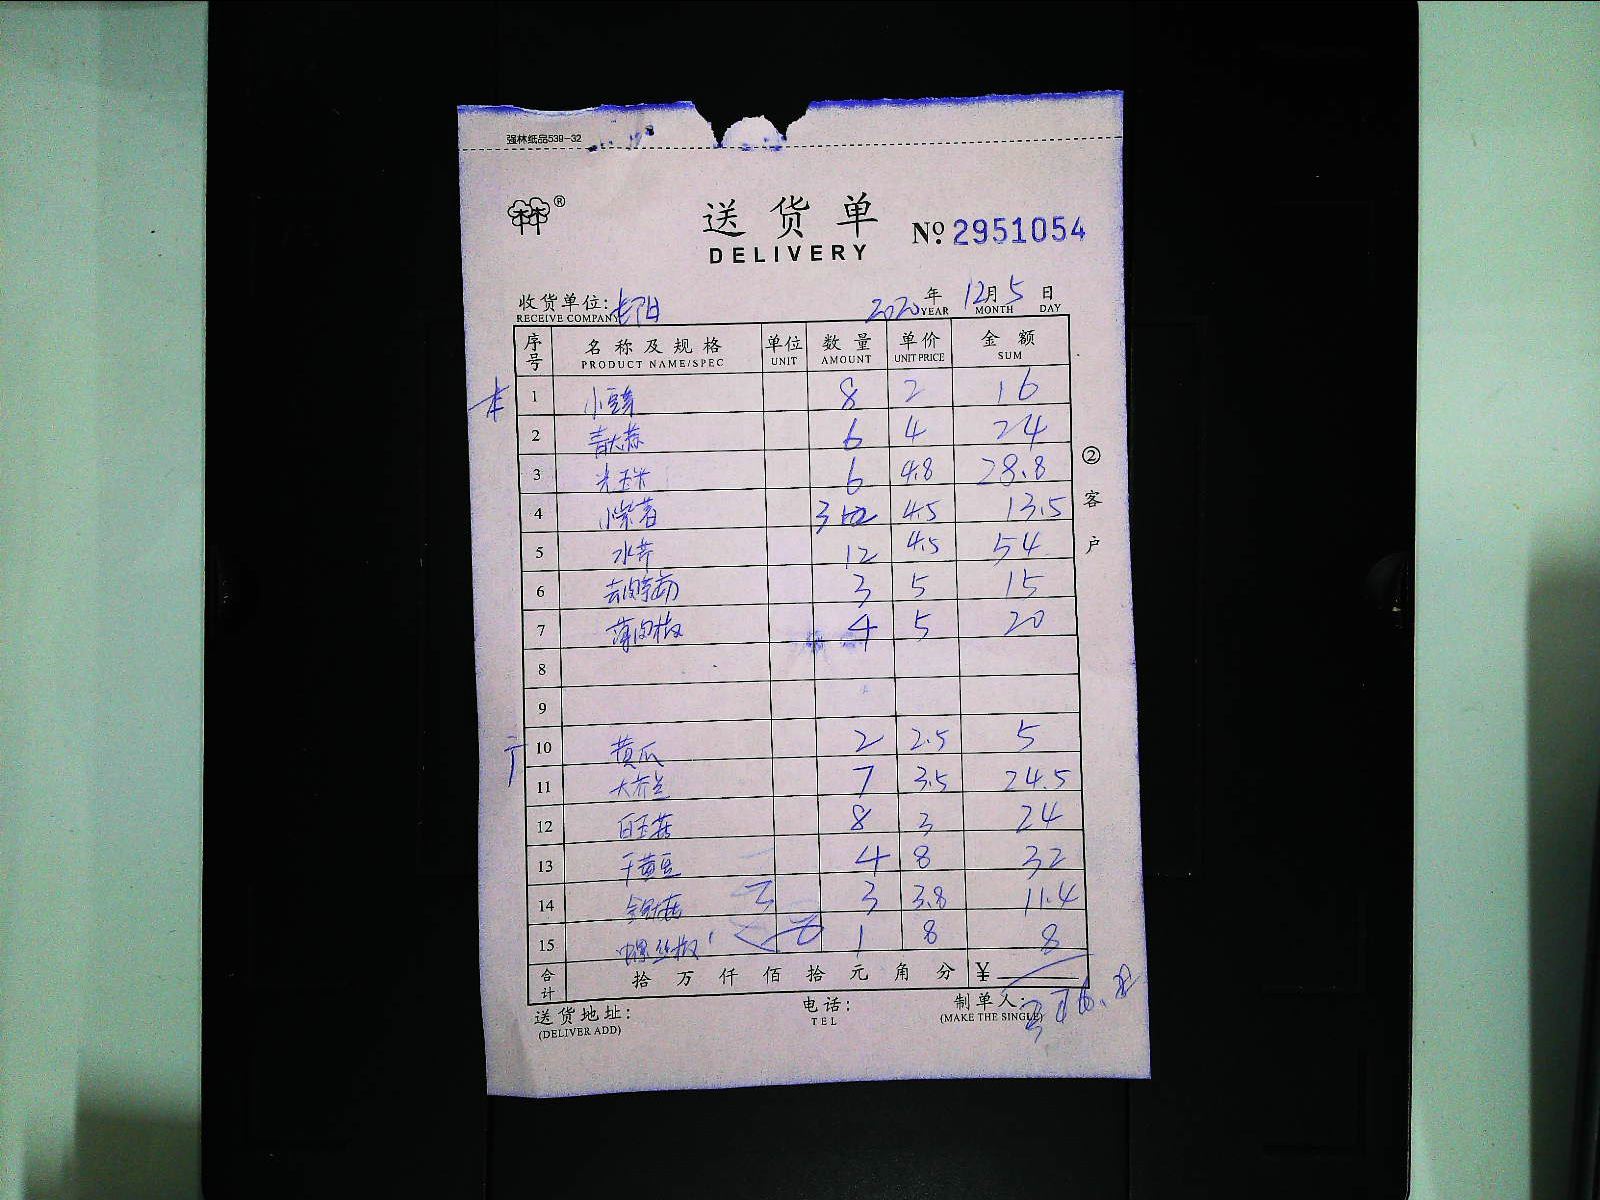 强林纸品539-32
林®
送货单
DELIVERY
No. 2951054
收货单位: 长阳 2020年12月5日
RECEIVE COMPANY YEAR MONTH DAY
序号 名称及规格 单位 数量 单价 金额
PRODUCT NAME/SPEC UNIT AMOUNT UNIT PRICE SUM
1 小豆芽 8 2 16
2 青大蒜 6 4 24
3 光玉米 6 4.8 28.8
4 小紫薯 3 4.5 13.5
5 水芹 12 4.5 54
6 去皮莴笋 3 5 15
7 薄皮椒 4 5 20
8
9
10 黄瓜 2 2.5 5
11 大芥兰 7 3.5 24.5
12 白玉菇 8 3 24
13 干黄豆 4 8 32
14 金针菇 3 3.8 11.4
15 螺丝椒 1 8 8
合计 拾万仟佰拾元角分 ¥
②客户
送货地址: 电话: 制单人:
(DELIVER ADD) TEL (MAKE THE SINGLE)